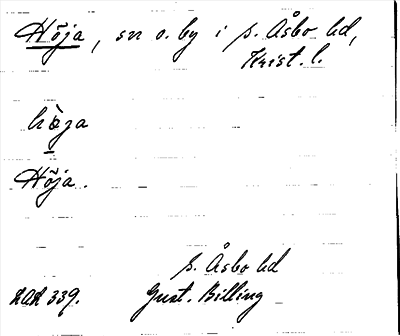 Höja, sn o. by i s. Åsbo hd,
Krist. l.
höja
Höja.
s. Åsbo hd
LAL 339. Gust. Billing